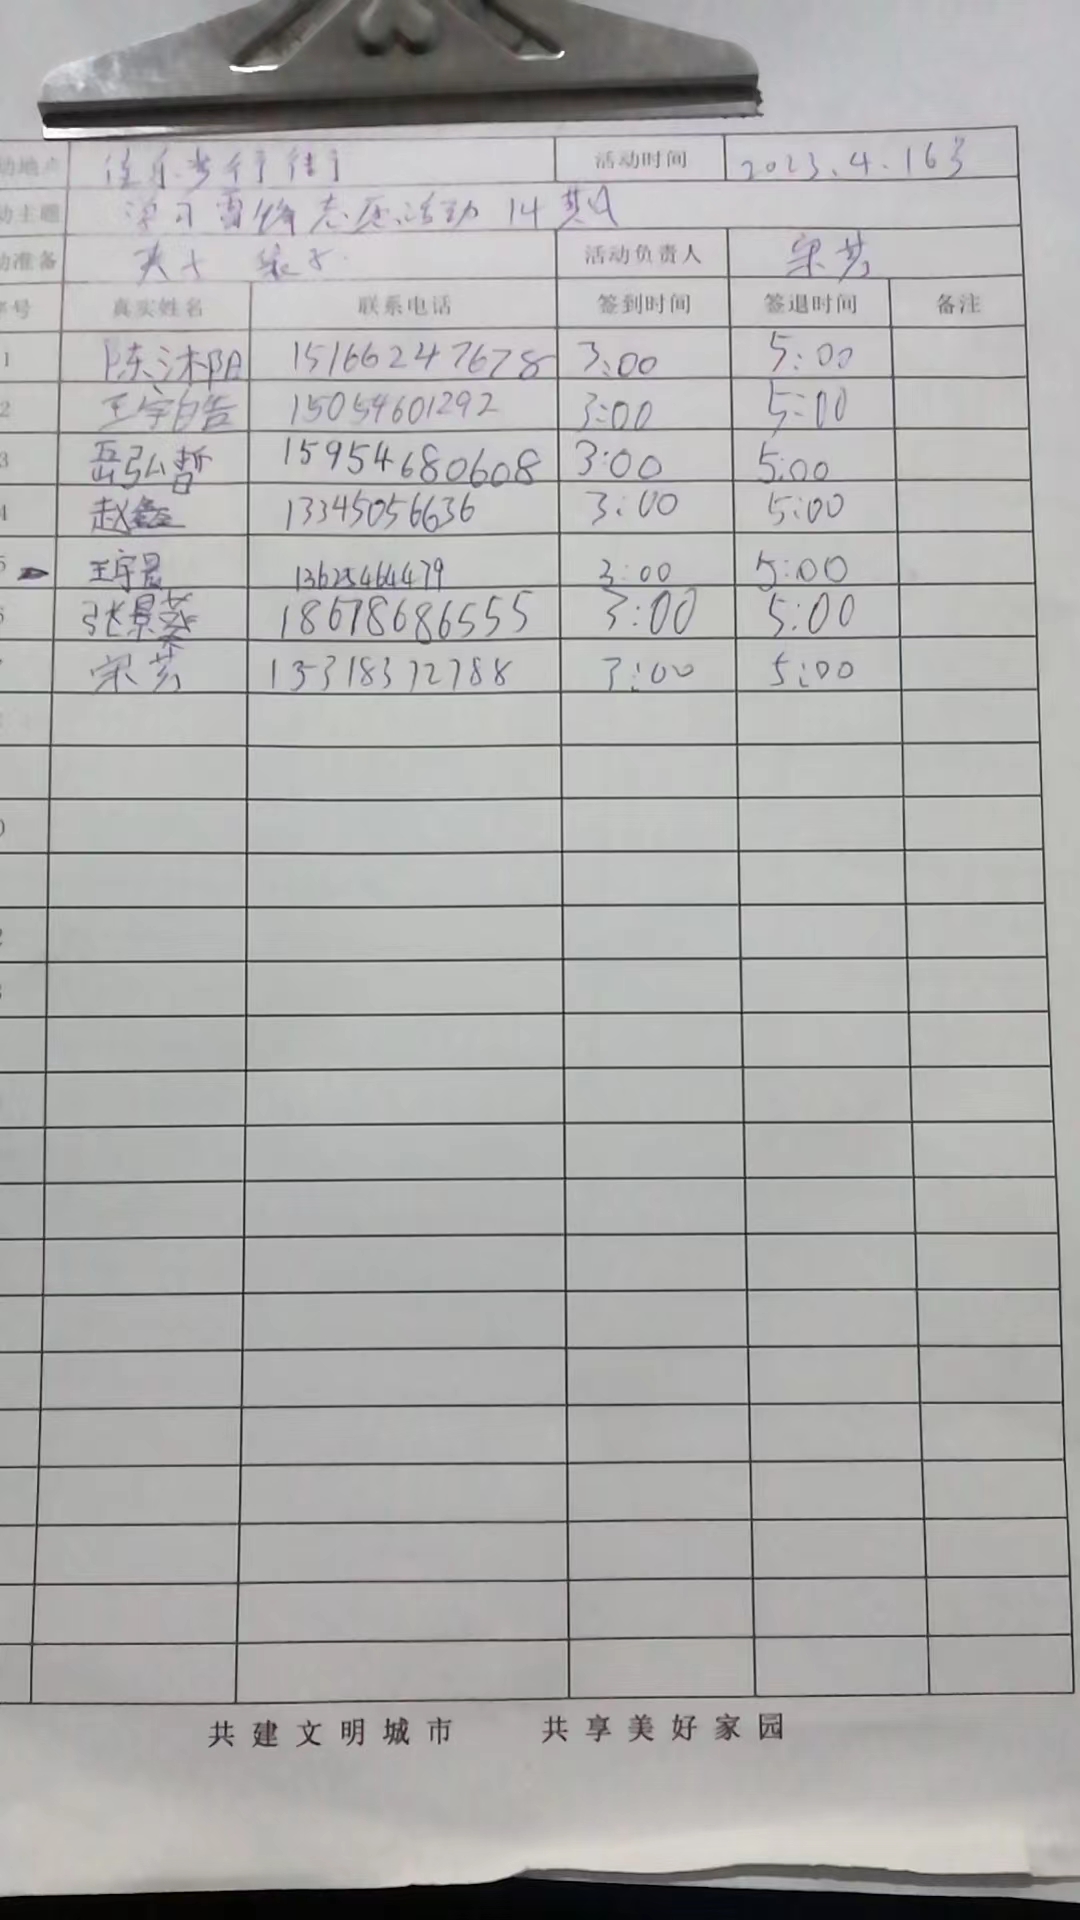 动地点 步行街 活动时间 2023.4.16
动主题 学习雷锋志愿活动 14期
动准备 夹子 袋子 活动负责人 宋芸
序号 真实姓名 联系电话 签到时间 签退时间 备注
1 陈沐阳 15166247678 3:00 5:00
2 王宇皓 15054601292 3:00 5:00
3 岳弘哲 15954680608 3:00 5:00
4 赵鑫 13345056636 3:00 5:00
5 王宇晨 13625464479 3:00 5:00
6 张景 18678686555 3:00 5:00
宋芸 3:00 5:00
共建文明城市 共享美好家园